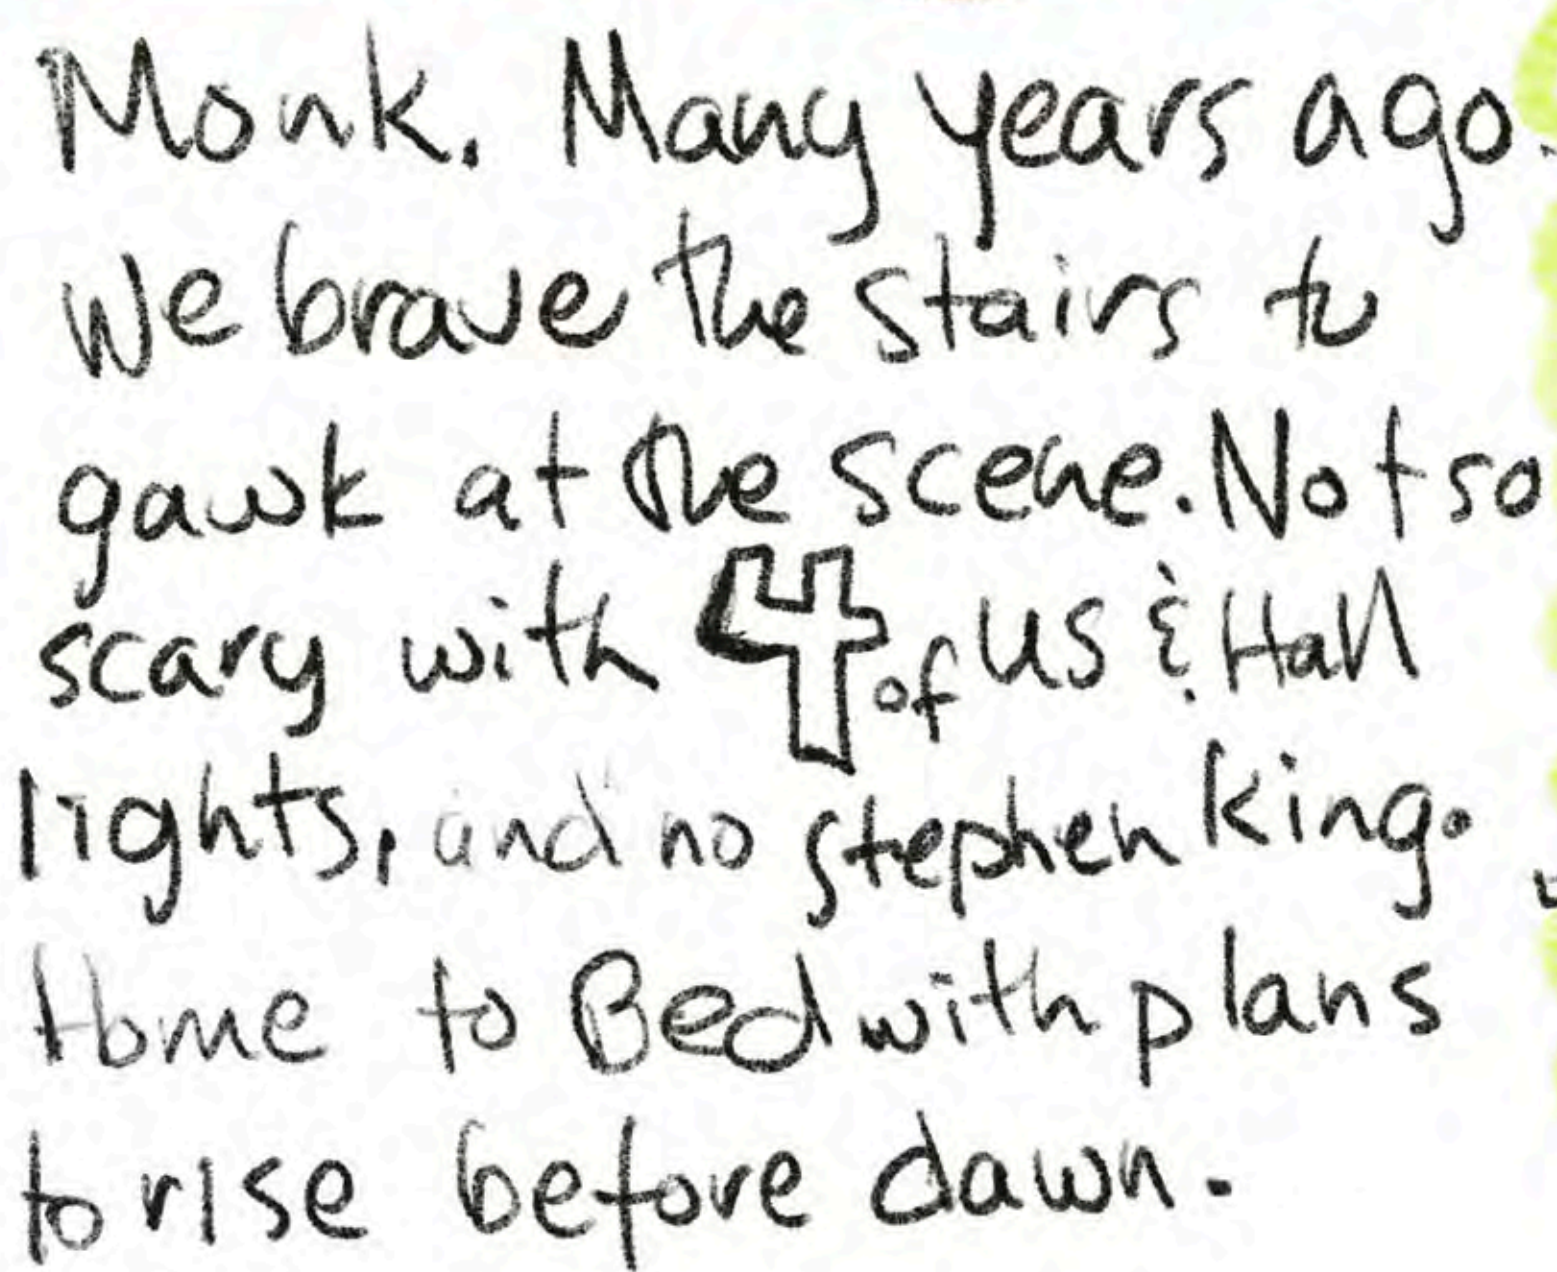 Monk. Many years ago.
We brave the stairs to
gawk at the scene. Not so
scary with 4 of us & Hall
lights, and no stephen king.
Home to Bed with plans
to rise before dawn.